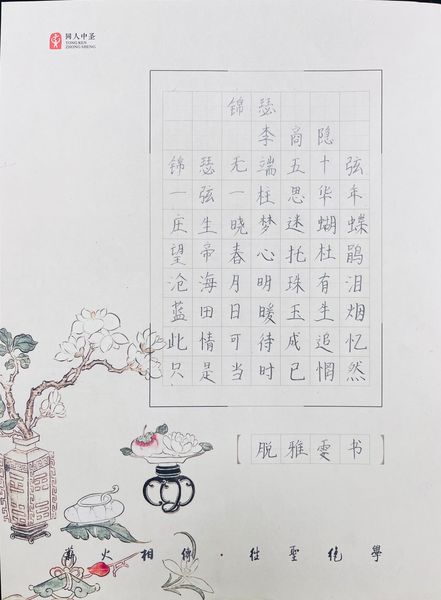 同人中圣
TONG REN
ZHONG SHENG
锦瑟
李商隐
锦瑟无端五十弦
一弦一柱思华年
庄生晓梦迷蝴蝶
望帝春心托杜鹃
沧海月明珠有泪
蓝田日暖玉生烟
此情可待成追忆
只是当时已惘然
【脱雅雯书】
薪火相傳·往聖絕學